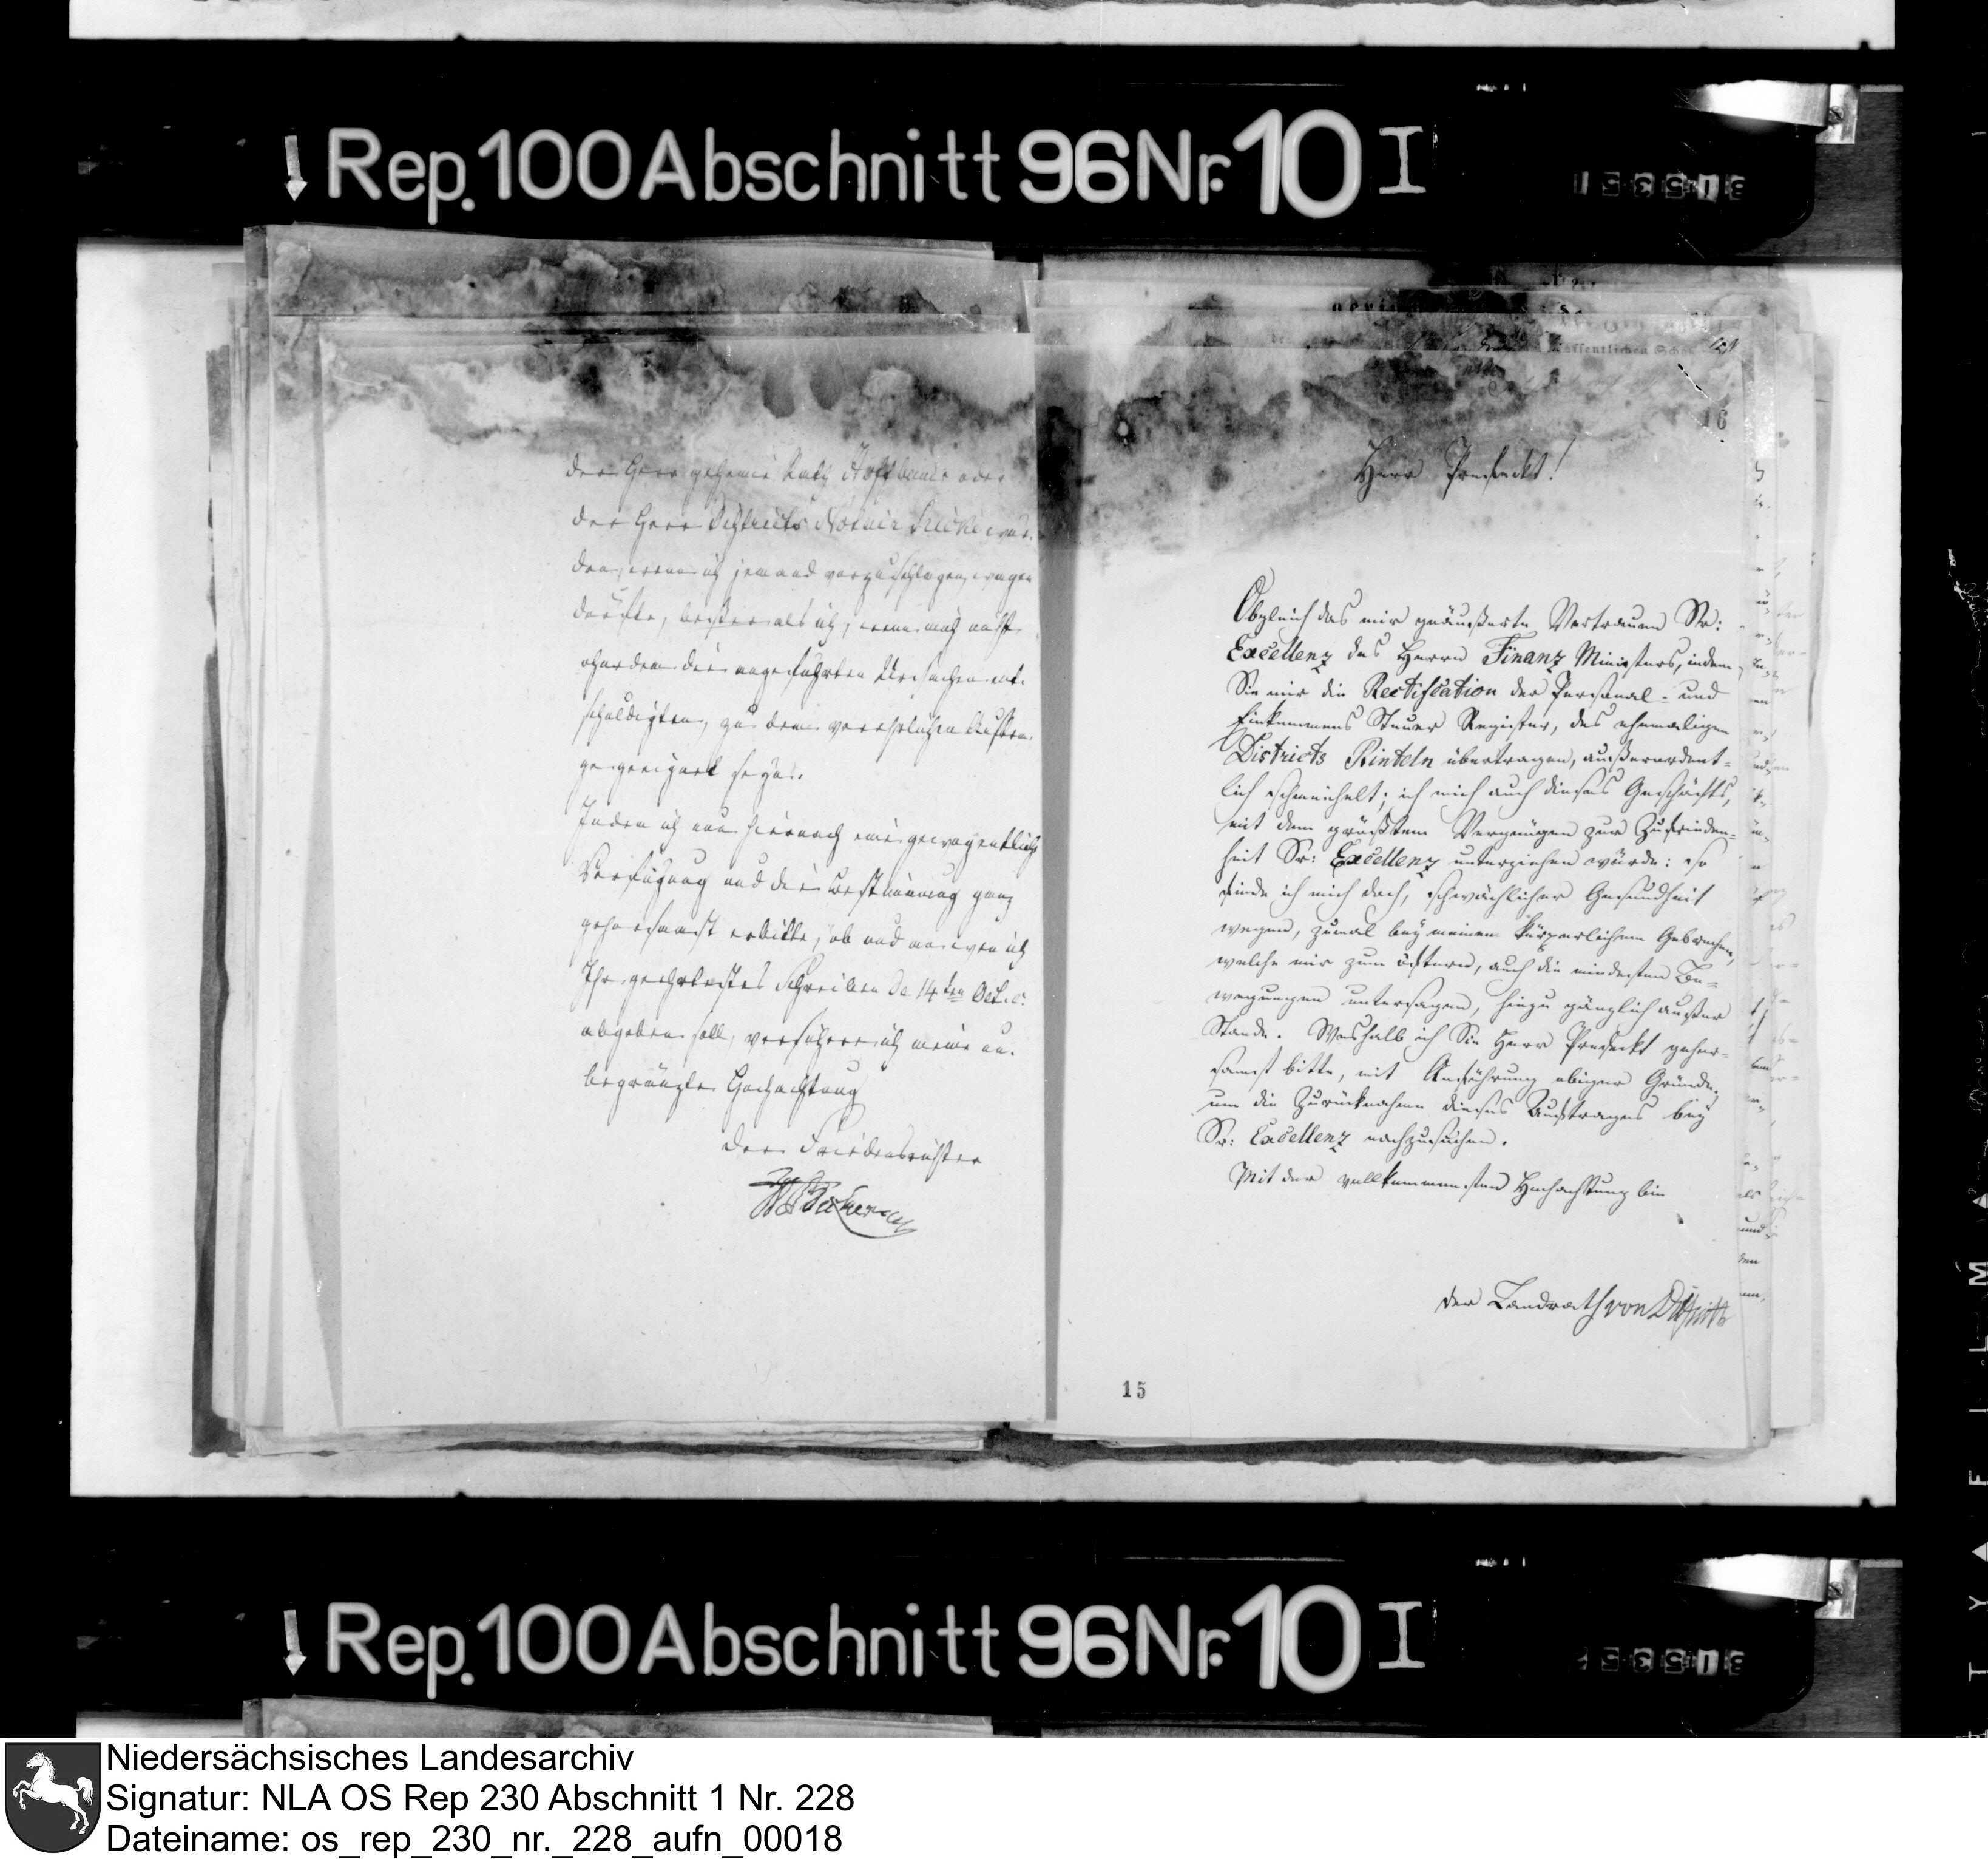 Rep. 100 Abschnitt 96 Nr. 10 I
der Herr geheime Rath Hoffbauer oder
der Herr Districts Notair wer-
den, wenn ich jemand vorzuschlagen wagen
dürfte, besser als ich, wenn mich nicht
ohnedem die angeführten Ursachen ent-
schuldigten, zu dem verehrlichen Auftra-
ge geeignet seyn.
Indem ich nun hiernach eine gewogentliche
Verfügung und die Bestimmung ganz
gehorsamst erbitte, ob und an wen ich
Ihr geehrtestes Schreiben de 14ten Oct. c.
abgeben soll, versichere ich meine un-
begränzte Hochachtung
der Friedensrichter
16
Herr Praefeckt!
Obgleich das mir geäußerte Vertrauen Sr:
Excellenz des Herrn Finanz Ministers, indem
Sie mir die Rectification der Personal- und
Einkommens Steuer Register, des ehemaligen
Districts Rinteln übertragen, außerordent-
lich schmeichelt; ich mich auch dieses Geschäfts,
mit dem größtem Vergnügen zur Zufrieden-
heit Sr: Excellenz unterziehen würde: so
finde ich mich doch, schwächlicher Gesundheit
wegen, zumal bey meinen körperlichem Gebrechen,
welche mir zum öftern, auch die mindesten Be-
wegungen untersagen, hiezu gänzlich außer
Stande. Weshalb ich Sie Herr Praefeckt gehor-
samst bitte, mit Anführung obiger Gründe,
um die Zurücknahme dieses Auftrages bey
Sr: Excellenz nachzusuchen.
Mit der vollkommensten Hochachtung bin
der Landrath von
15
Rep. 100 Abschnitt 96 Nr. 10 I
Niedersächsisches Landesarchiv
Signatur: NLA OS Rep 230 Abschnitt 1 Nr. 228
Dateiname: os_rep_230_nr._228_aufn_00018